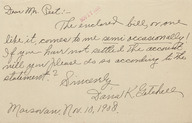 Dear Mr. Peet:-
The enclosed bill, more
like it, comes to me semi occasionally!
If you have not settled the account
will you please do so according to the
statement?
Sincerely
Dana K. Getchell
Marsovan Nov. 10, 1908.